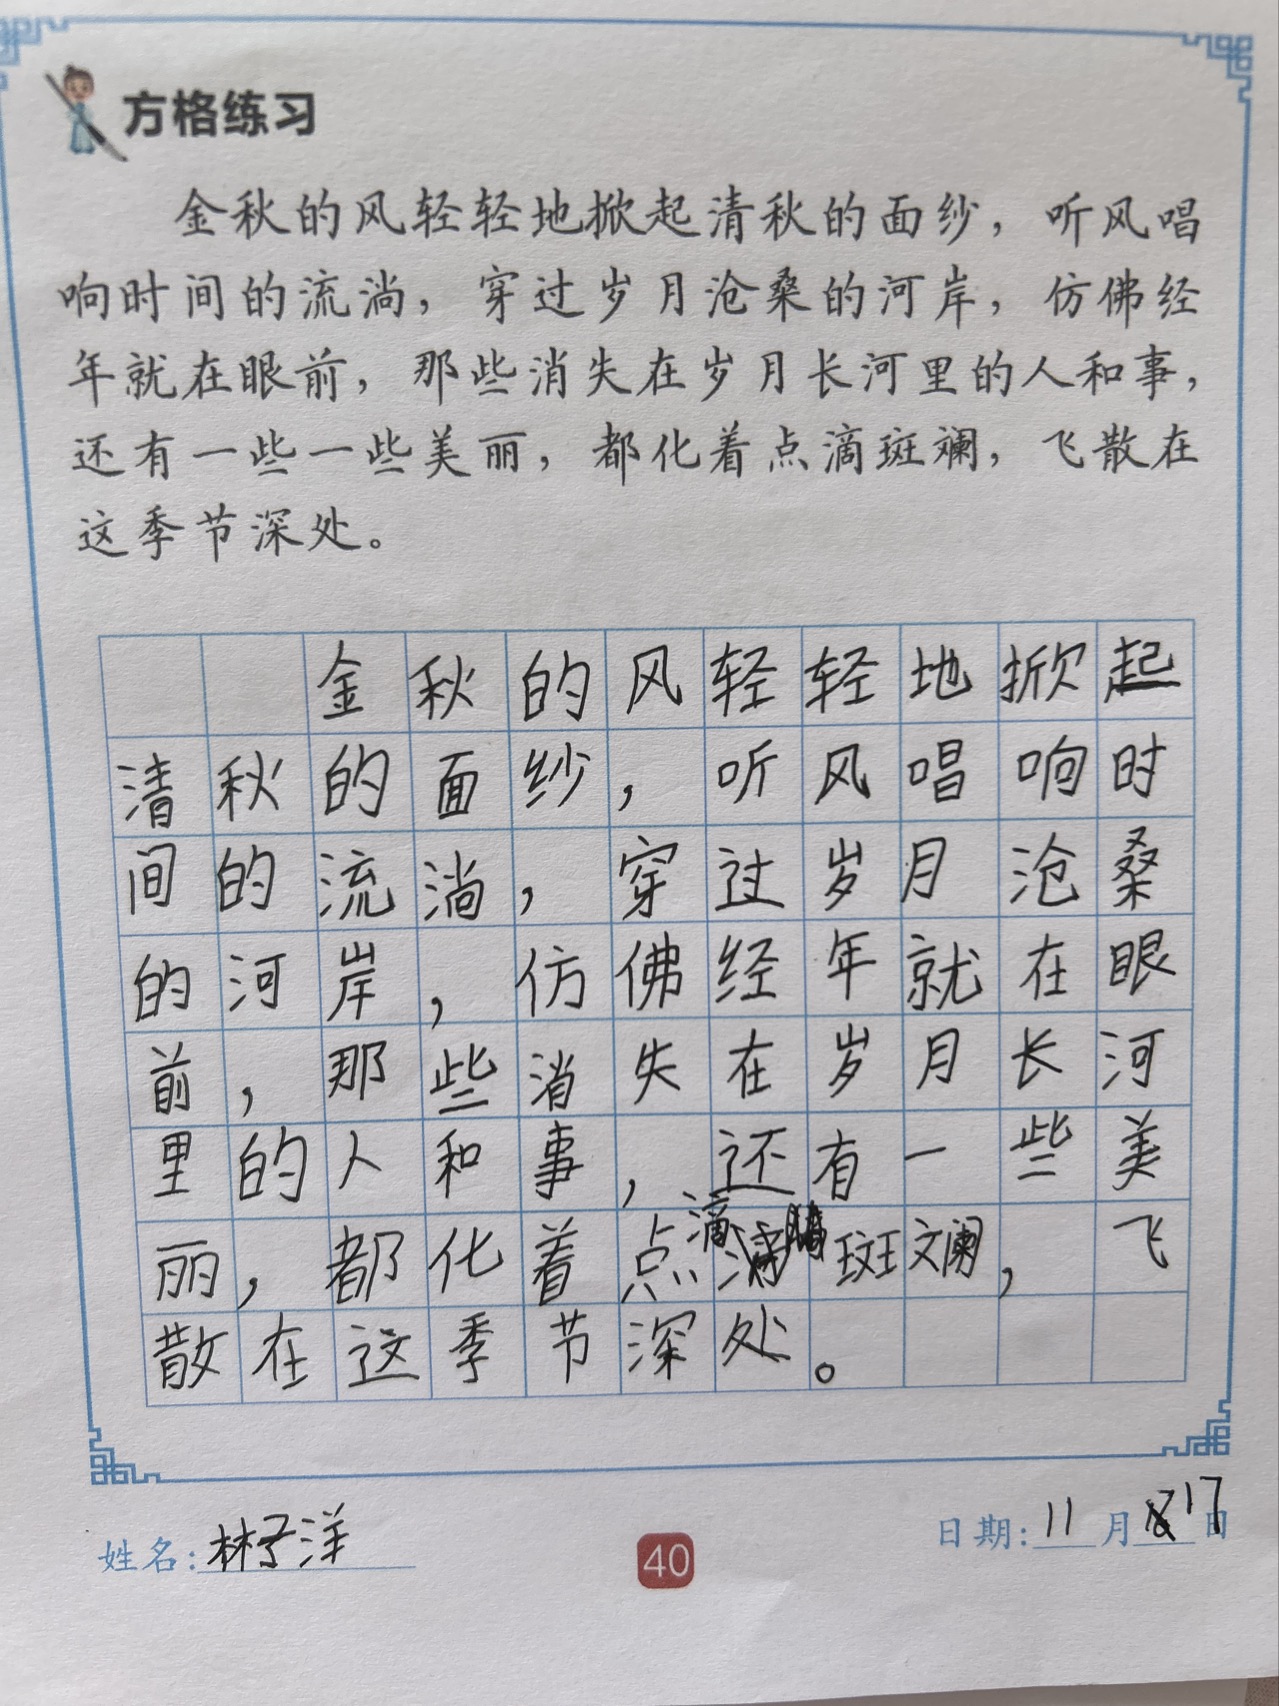 方格练习
金秋的风轻轻地掀起清秋的面纱，听风唱
响时间的流淌，穿过岁月沧桑的河岸，仿佛经
年就在眼前，那些消失在岁月长河里的人和事，
还有一些一些美丽，都化着点滴斑斓，飞散在
这季节深处。
金秋的风轻轻地掀起
清秋的面纱，听风唱响时
间的流淌，穿过岁月沧桑
的河岸，仿佛经年就在眼
前，那些消失在岁月长河
里的人和事，还有一些美
丽，都化着点滴斑斓，飞
散在这季节深处。
姓名：林子洋
40
日期：11月17日